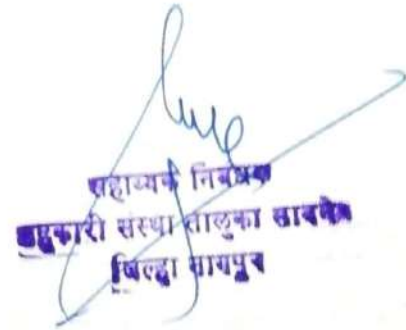 सहाय्यक निबंधक
सहकारी संस्था तालुका सावनेर
जिल्हा नागपूर